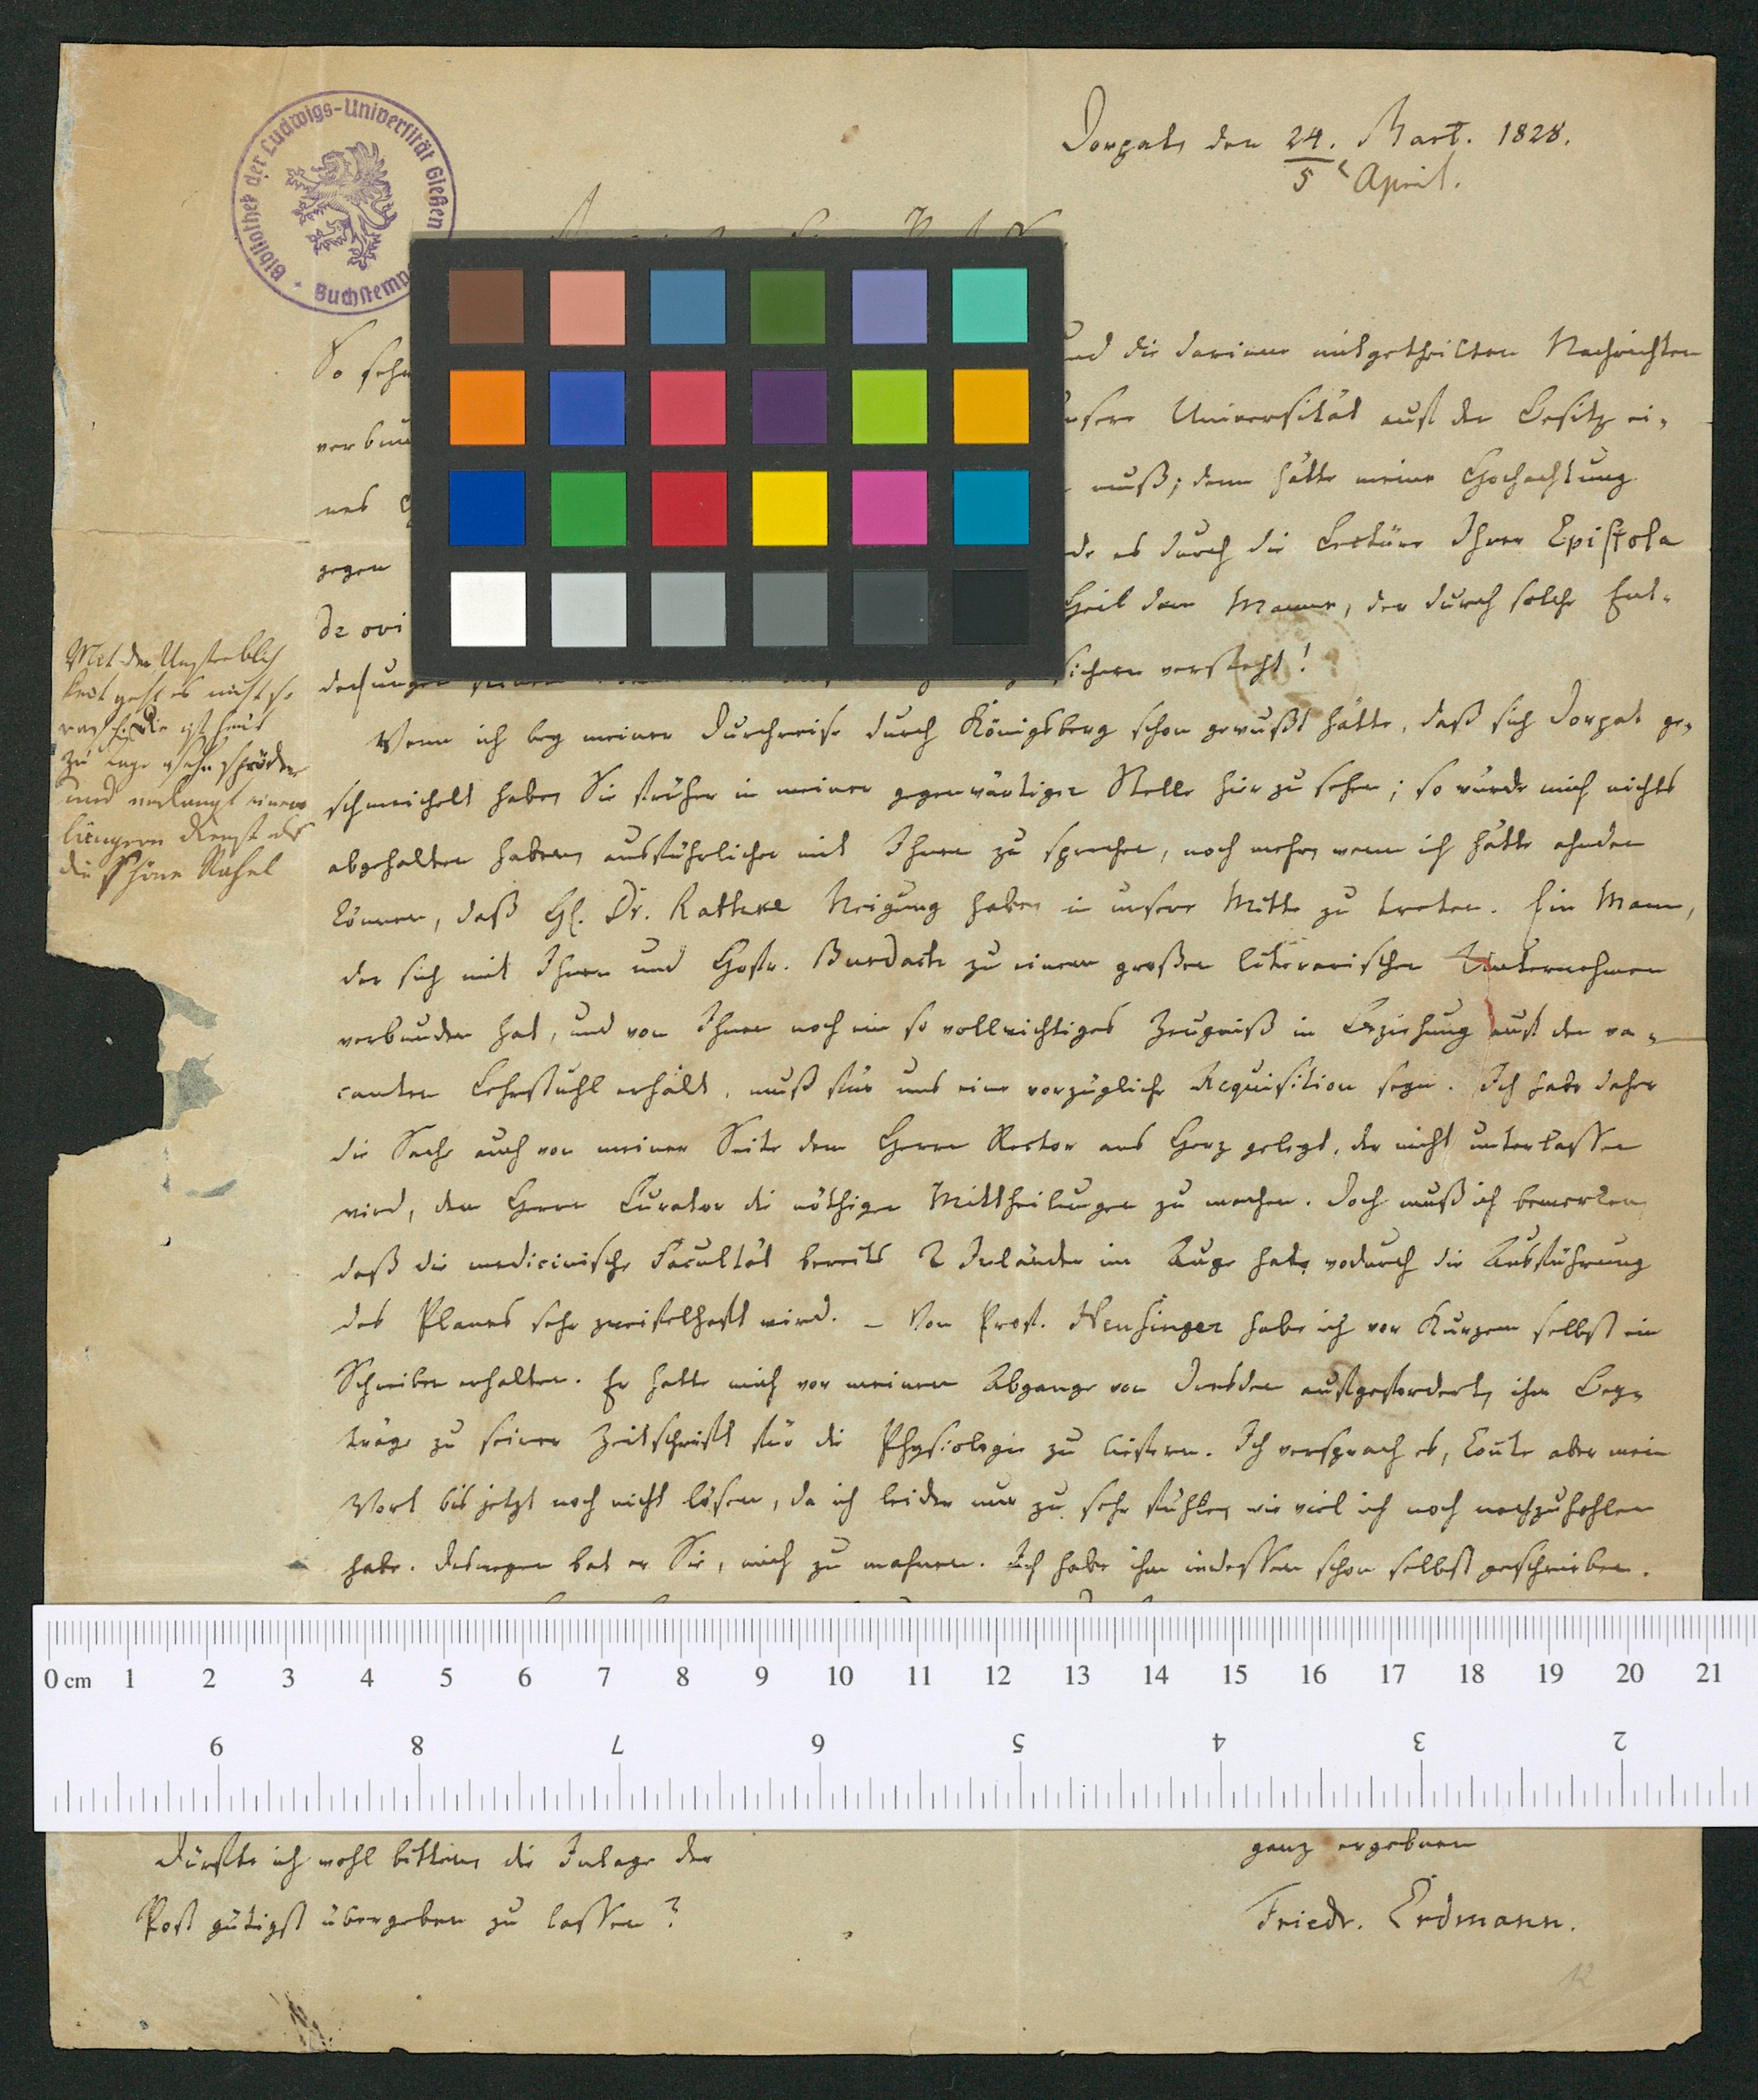 Bibliothek der Ludwigs-Universität Gießen
Buchstemp
Dorpat, den 24. Mart. 1828.
5 April.
So sehr
und die darinne mitgetheilten Nachrichten
verbun
unsere Universität auf den Besitz ei-
nes
muß; denn hätte meine Hochachtung
gegen
de es durch die Lectüre Ihrer Epistola
de ovi
Heil dem Manne, der durch solche Ent-
deckungen
sichern versteht!
Mit der Unsterblich
keit geht es nicht so
rasch. Die ist heut
zu Tage sehr spröde
und verlangt einen
längern Dienst als
die schöne Rahel
Wenn ich bey meiner Durchreise durch Königsberg schon gewußt hätte, daß sich Dorpat ge-
schmeichelt habe, Sie früher in meiner gegenwärtigen Stelle hier zu sehen; so würde mich nichts
abgehalten haben, ausführlicher mit Ihnen zu sprechen, noch mehr, wenn ich hätte ahnden
können, daß H. Dr. Rathke Neigung habe, in unsere Mitte zu treten. Ein Mann,
der sich mit Ihnen und Hofr. Burdach zu einem großen literarischen Unternehmen
verbunden hat, und von Ihnen noch ein so vollwichtiges Zeugniß in Beziehung auf den va-
canten Lehrstuhl erhält, muß für uns eine vorzügliche Acquisition seyn. Ich habe daher
die Sache auch von meiner Seite dem Herrn Rector ans Herz gelegt, der nicht unterlassen
wird, dem Herrn Curator die nöthigen Mittheilungen zu machen. Doch muß ich bemerken,
daß die medicinische Facultät bereits 2 Inländer im Auge hat, wodurch die Ausführung
des Planes sehr zweifelhaft wird. – Von Prof. Heusinger habe ich vor Kurzem selbst ein
Schreiben erhalten. Er hatte mich vor meinem Abgange von Dresden aufgefordert, ihm Bey-
träge zu seiner Zeitschrift für die Physiologie zu liefern. Ich versprach es, konnte aber mein
Wort bis jetzt noch nicht lösen, da ich leider nur zu sehr fühle, wie viel ich noch nachzuhohlen
habe. Deswegen bat er Sie, mich zu mahnen. Ich habe ihm indessen schon selbst geschrieben.
0 cm 1 2 3 4 5 6 7 8 9 10 11 12 13 14 15 16 17 18 19 20 21
9 8 7 6 5 4 3 2
Dürfte ich wohl bitten, die Inlage der
Post gütigst übergeben zu lassen?
ganz ergebner
Friedr. Erdmann.
12